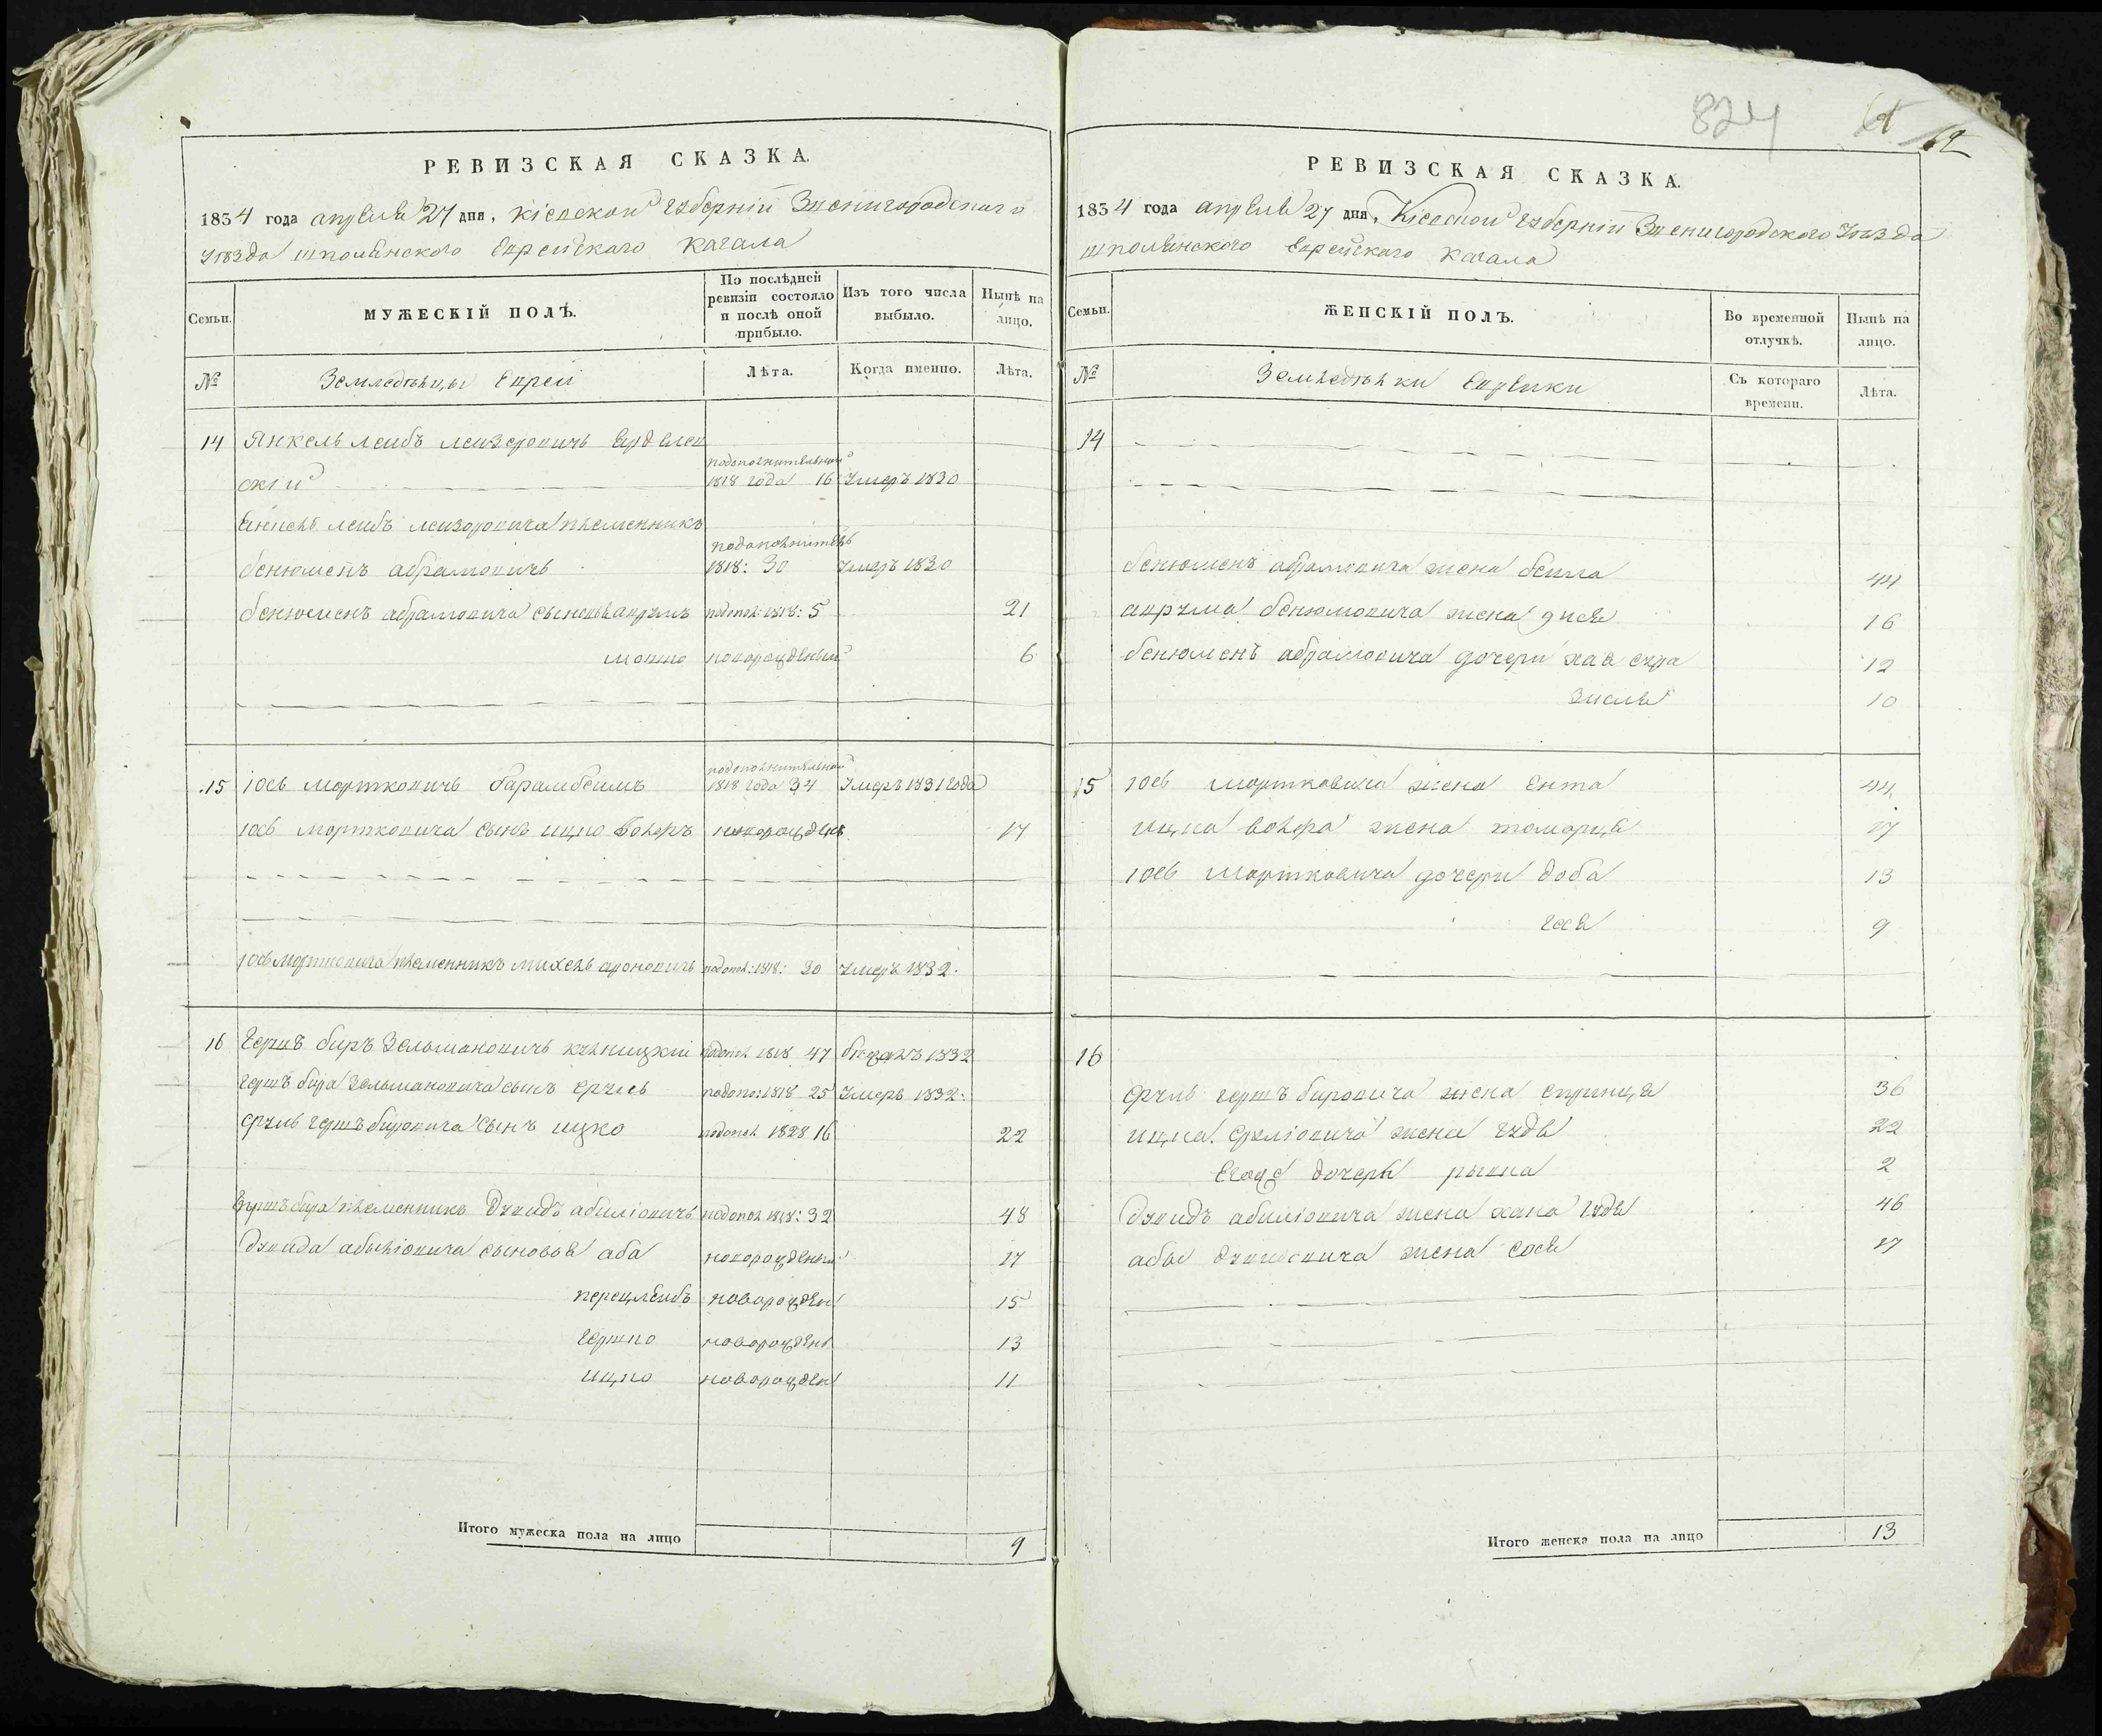 РЕВИЗСКАЯ СКАЗКА.
1834 года апреля 27 дня, Кіевской губерніи Звенигородского
уѣзда шполянского Еврейского Кагала
Семьи.
МУЖЕСКІЙ ПОЛЪ.
По послѣдней ревизіи состояло и послѣ оной прибыло.
Изъ того числа выбыло.
Нынѣ на лицо.
№
Земледѣльцы Евреи
Лѣта.
Когда именно.
Лѣта.
14 Янкель леибъ леизеровичь
скіи подополнительной 1818 года 16 Умеръ 1830
леибъ леизоровича племенникъ
бенюменъ абрамовичь подополнитель 1818: 30 Умеръ 1830
бенюменъ абрамовича сыновья аврумъ подопол: 1818: 5 21
мошко новорожденый 6
15 Іось мортковичь барамбеимъ подополнительной 1818 года 34 Умеръ 1831 года
Іось мортковича сынъ ицко волфъ новорожденъ 17
Іось мортковича племенникъ михель ароновичь подопол: 1818: 30 Умеръ 1832.
16 Гершъ биръ Зельмановичь подопол 1818 47 1832
гершъ бира зельмановича сынъ сруль подопо: 1818 25 Умеръ 1832.
сруль гершъ бировича сынъ ицко подопол 1828 16 22
Гершъ бира племенникъ Дувидъ абиліовичь подопол 1818: 32 48
Дувида абиліовича сыновья аба новорожденый 17
перецлеибъ новорожден 15
гершко новорожден 13
ицко новорожден 11
Итого мужеска пола на лицо 9
824
РЕВИЗСКАЯ СКАЗКА.
1834 года апреля 27 дня, Кіевской губерніи Звенигородского Уѣзда
шполянского Еврейского Кагала
Семьи.
ЖЕНСКІЙ ПОЛЪ.
Во временной отлучкѣ.
Нынѣ на лицо.
№
Земледѣлки Еврейки
Съ котораго времени.
Лѣта.
14
бенюменъ абрамовича жена беила 44
аврума бенюмовича жена 16
бенюменъ абрамовича дочери хая сура 12
зисля 10
15 Іось мортковича жена Ента 44
ицка волфа жена томарця 17
Іось мортковича дочери доба 13
9
16
сруль гершъ бировича жена спринця 36
ицка сруліовича жена гудя 22
Егоже дочерь рывка 2
Дувидъ абиліовича жена хана гудя 46
абы дувидовича жена сося 17
Итого женска пола на лицо 13